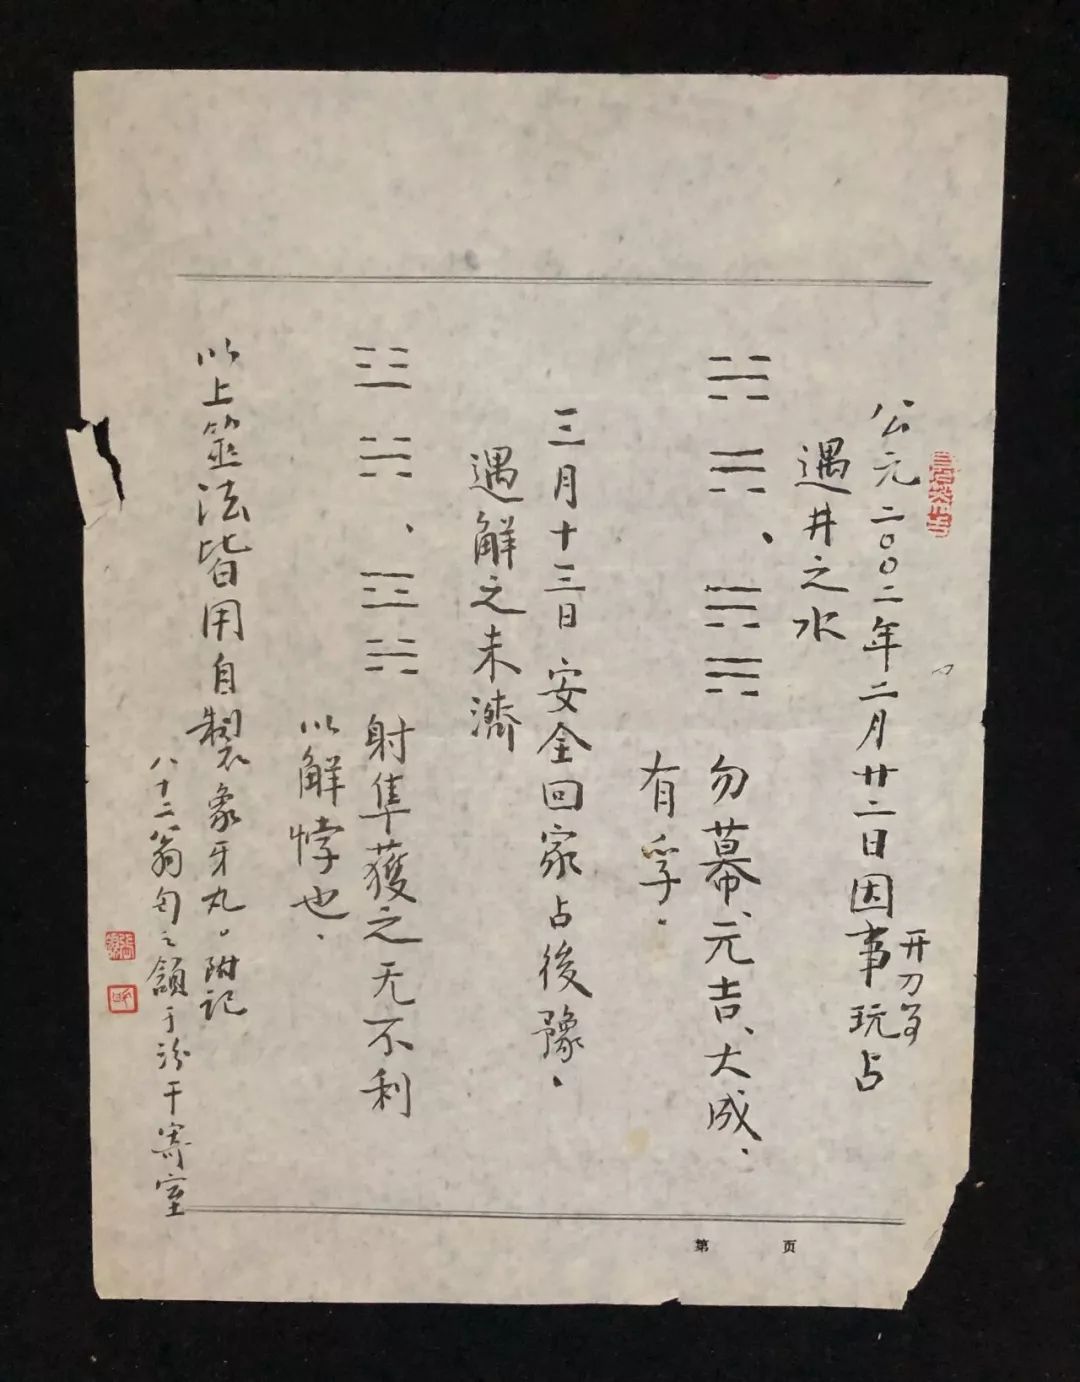 公元二〇〇二年二月廿二日因事玩占
开刀
遇井之水
勿幕、元吉、大成、
有孚。
三月十三日安全回家占後豫。
遇解之未濟
射隼獲之无不利
以解悖也、
以上筮法皆用自製象牙丸。附记
八十二翁
于汾干寄室
第 页